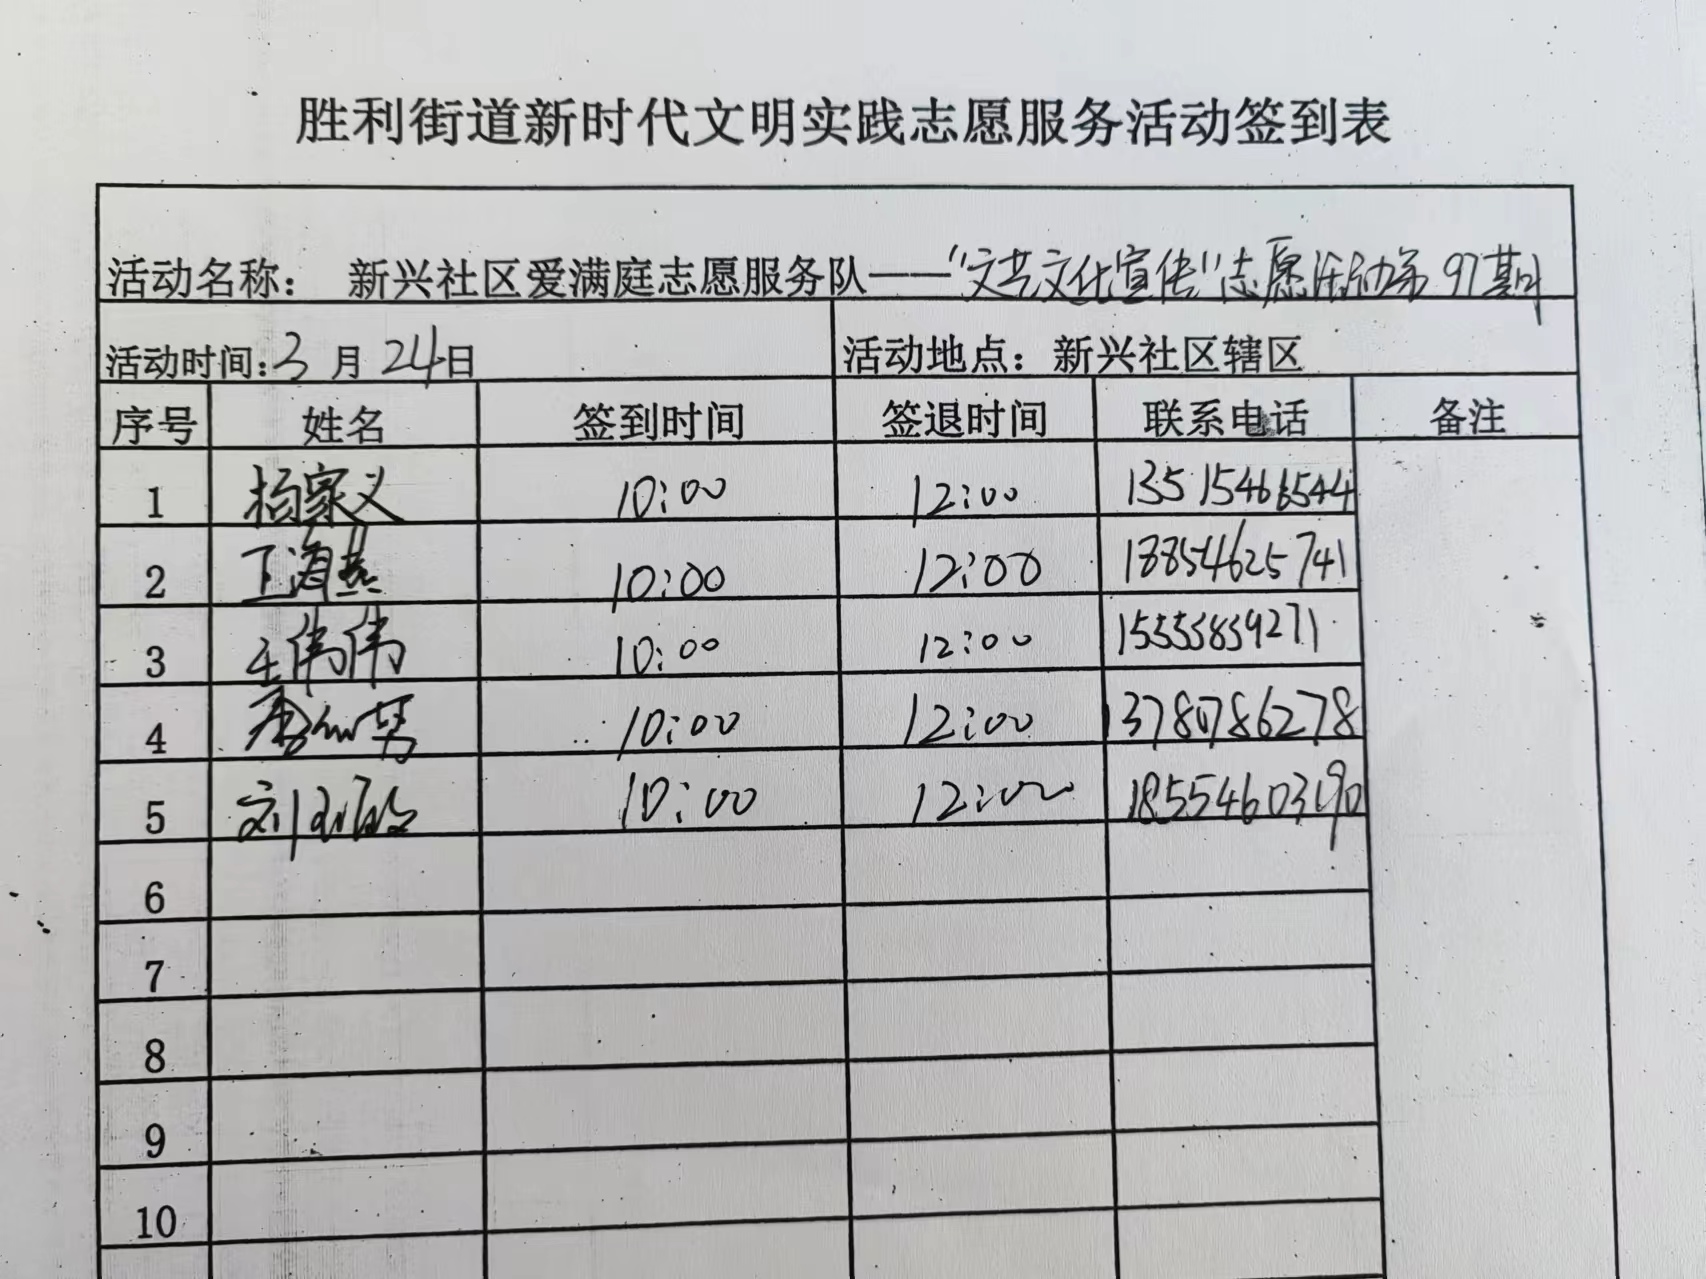 胜利街道新时代文明实践志愿服务活动签到表
活动名称： 新兴社区爱满庭志愿服务队——“文艺文化宣传”志愿活动第97期
活动时间：3月24日 活动地点：新兴社区辖区
序号 姓名 签到时间 签退时间 联系电话 备注
1 杨家义 10:00 12:00 13515466544
2 王海燕 10:00 12:00 18854625741
3 王伟伟 10:00 12:00 15555859271
4 10:00 12:00 13780786278
5 刘 10:00 12:00 18554603190
6
7
8
9
10